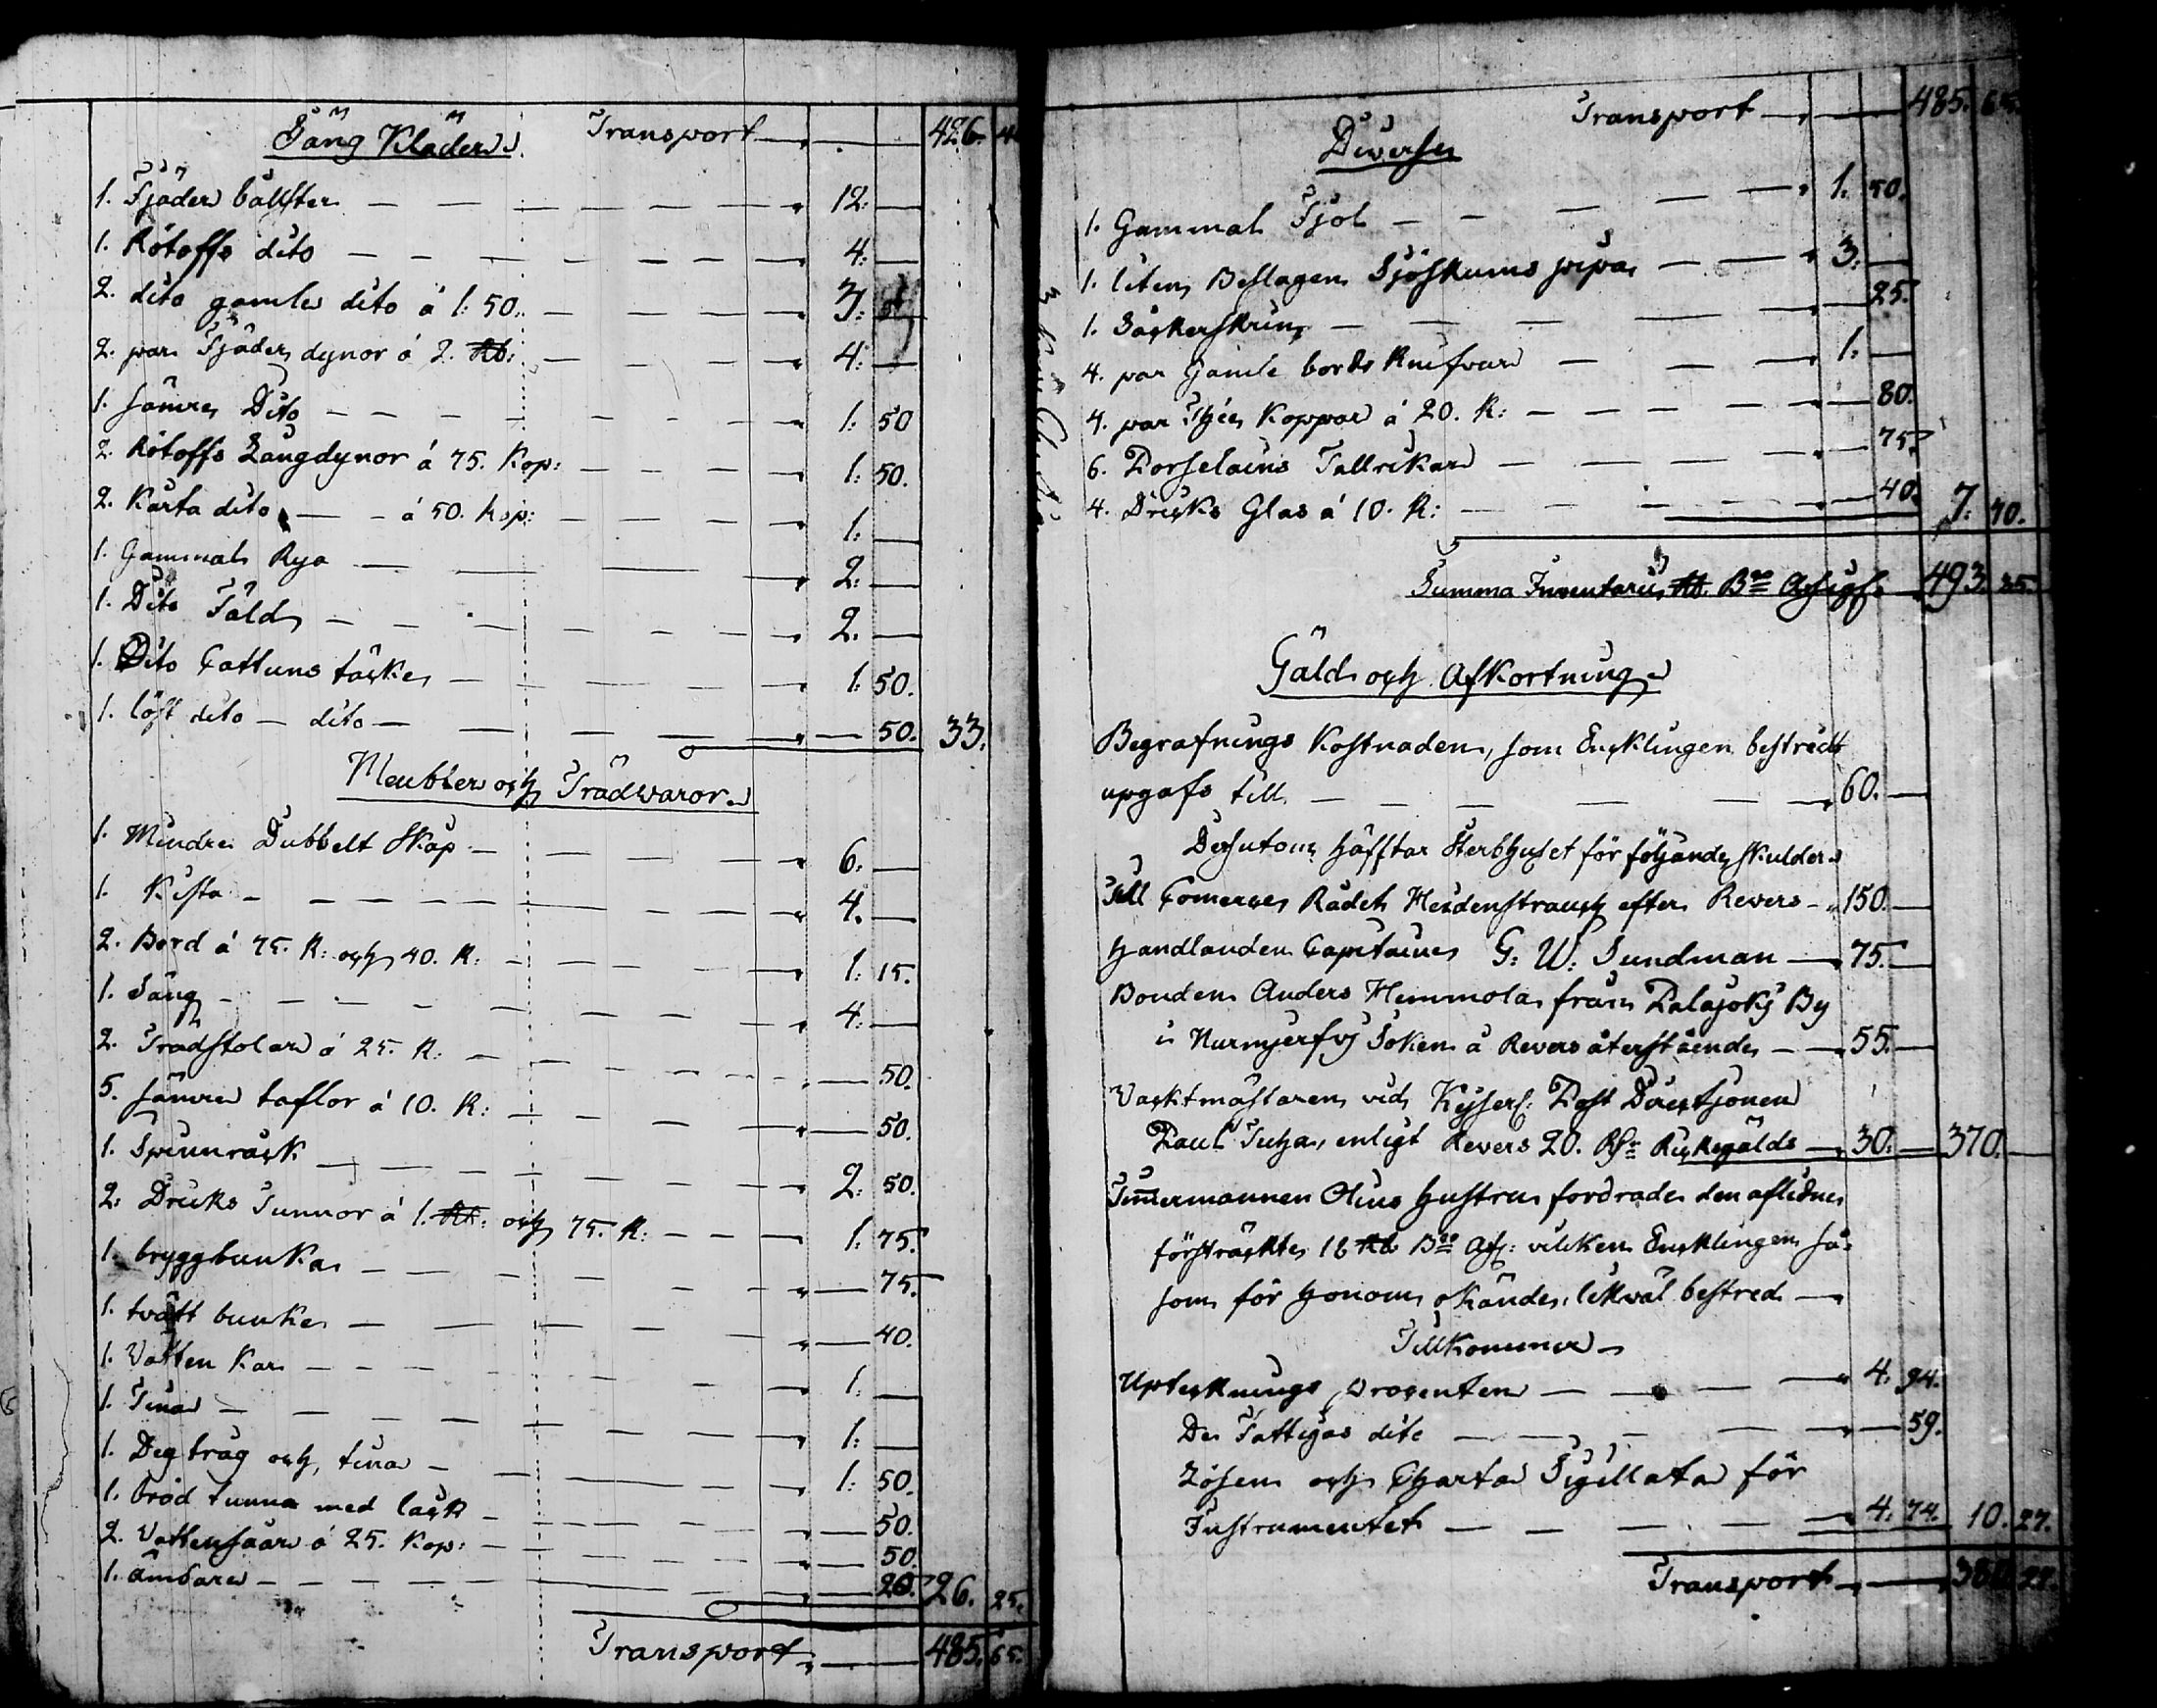 Säng Kläder. Transport — 426. 4
1. Fjäder bålster — 12: —
1. Rötoffs dito — 4: —
2. dito gamla dito á 1: 50. — 3: —
2. par Fjäder dynor á 2. Rb: — 4: —
1. sämre Dito — 1: 50
2. Rötoffs Långdynor á 75. Kop: — 1: 50.
2. Korta dito — á 50. kop: — 1: —
1. Gammal Rya — 2: —
1. Dito Fäld — 2. —
1. Dito Cattuns täcke — 1: 50.
1. löst dito — dito — 50. 33.
Meubler och Trädwaror.
1. Mindre Dubbelt Skåp — 6. —
1. Kista — 4. —
2. Bord á 75. K: och 40. K: — 1: 15.
1. Säng — 4: —
2. Trädstolar á 25. K: — 50.
5. sämre taflor á 10. K: — 50.
1. Spinnråck — 2. 50.
2. Dricks Tunnor á 1. Rb: och 75. K: — 1: 75.
1. bryggbunka — 75.
1. tvätt bunke — 40.
1. Vatten Kar — 1: —
1. Tina — 1: —
1. Deg tråg och tina — 1: 50.
1. bröd tunna med låck — 50.
2. Vattensåar á 25. Kop: — 50.
1. ämbare — 20. 26. 25.
Transport — 485. 65.
Transport — 485. 65.
Diverse
1. Gammal Fjol — 1: 50.
1. liten Beslagen Sjöskums pipa — 3: —
1. Såckerskrin — 25.
4. par Gamle bords Knifvar — 1: —
4. par Thée Koppar á 20. K: — 80.
6. Porselains Tallrikar — 75.
4. Dricks Glas á 10. K: — 40. 7: 70.
Summa Inventarii Rb Bco Assign — 493. 35.
Gäld och Afkortning
Begrafnings Kostnaden, som Encklingen bestridt
upgafs till — 60. —
Desutom häfftar Sterbhuset för följande skulder
Till Comerce Rådet Heidenstrauch efter Revers — 150. —
Handlanden Capitaine G: W: Sundman — 75. —
Bonden Anders Hemmola från Palajoki By
i Nurmjerfvi Soken á Revers återstående — 55. —
Vacktmästaren vid Kejserl: Post Directjonen
Paul Juha, enligt Revers 20. Rdr Ricksgälds — 30. — 370. —
Timmermannen Olins hustru fordrade den aflidne
försträckte 16 Rb Bco Ass: vilken Encklingen så
som för honom okände, likväl bestred —
Tillkommer
Uptecknings procenten — 4. 94.
De Fattigas dito — 59.
Lösen och Charta Sigillata för
Instrumentet — 4. 74. 10. 27.
Transport — 380. 27.